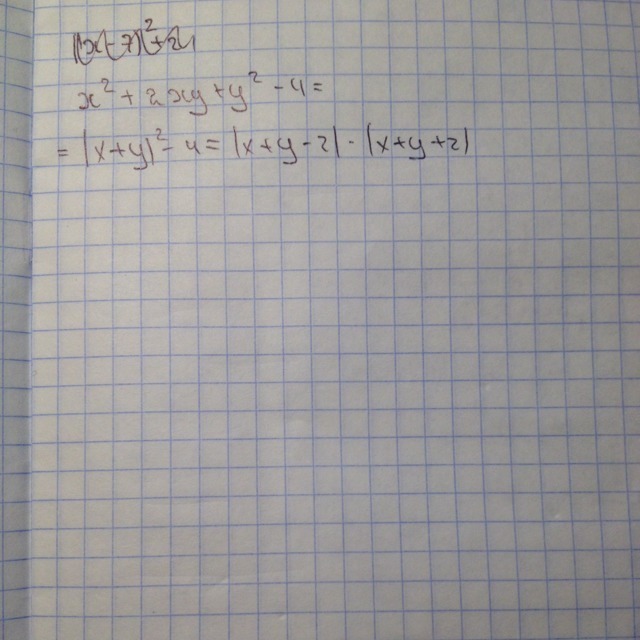 x² + 2xy + y² - 4 =
= (x+y)² - 4 = (x+y-2) · (x+y+2)